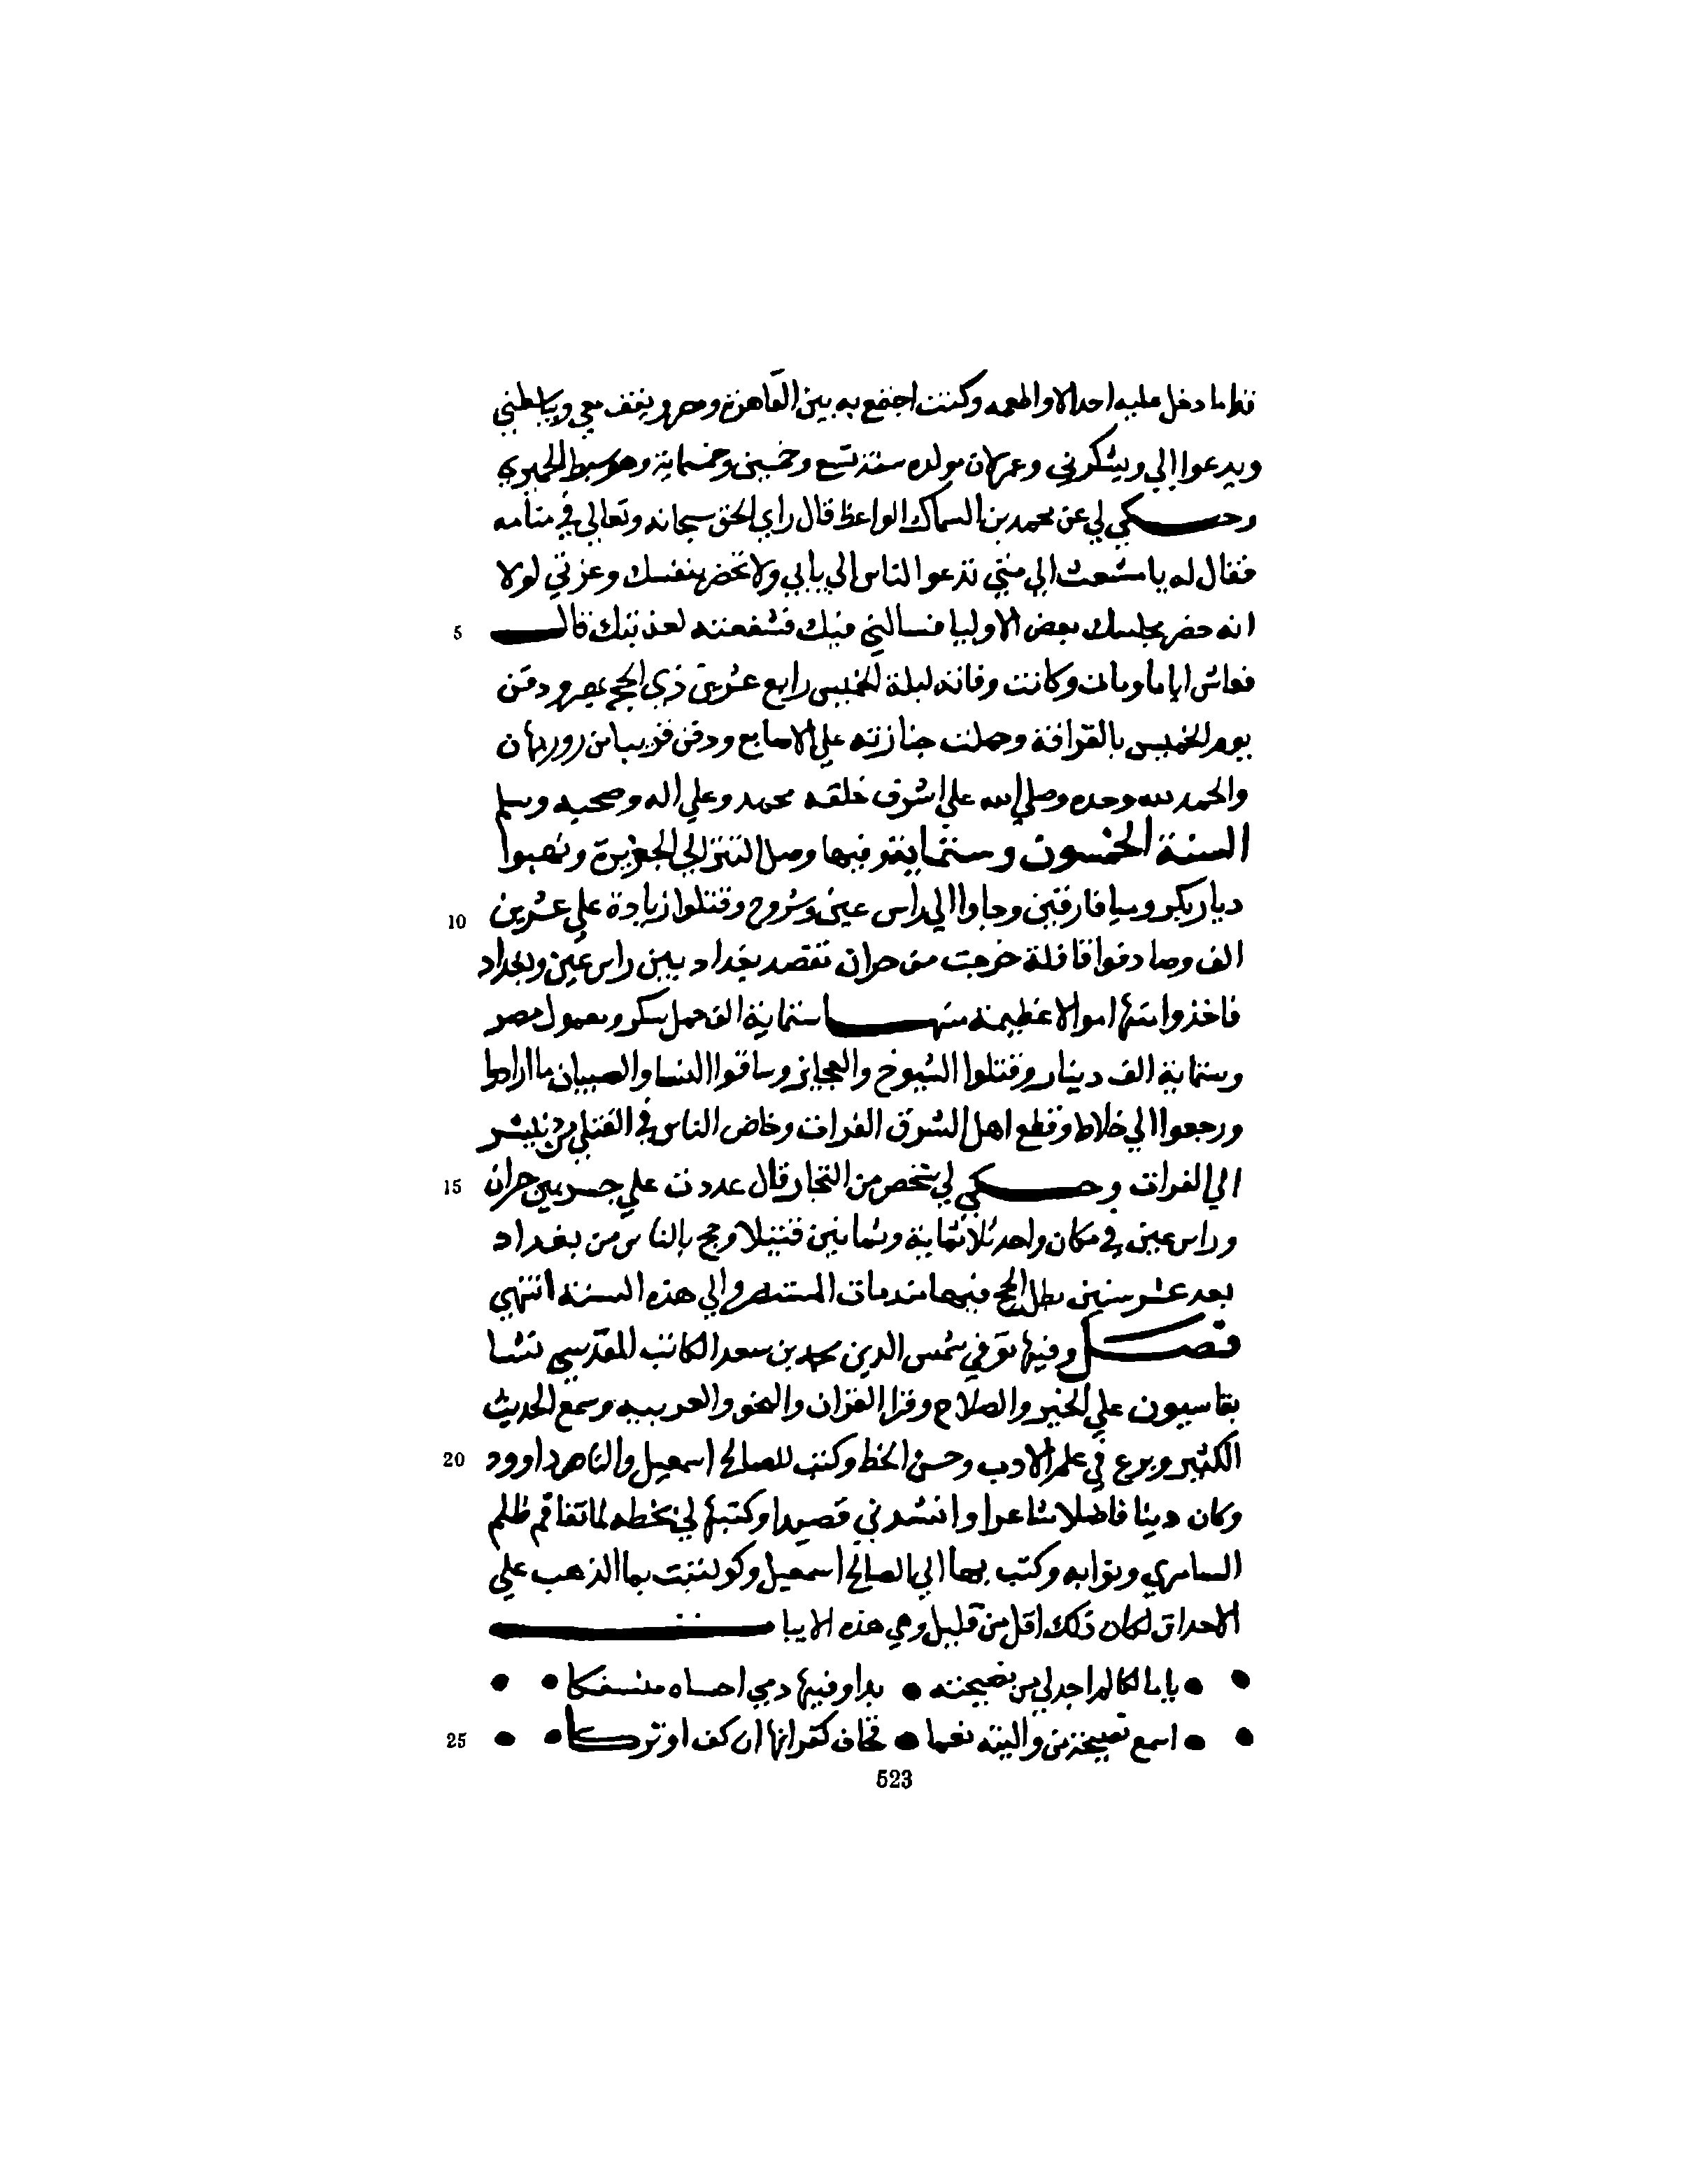 قط ما دخل عليه احد الا واطعمه وكنت اجتمع به بين القاهرة ومصر ويقف معي ويباسطني
ويدعوا الي ويشكرني وعمر كان مولده سنة تسع وخمسين وخمسماية وهو سبط الجبري
وحكي لي عن محمد بن السماك الواعظ قال راي الحق سبحانه وتعالي في منامه
فقال له يا مشعث الي متي تدعوا الناس الي بابي ولا تحضر بنفسك وعزتي لولا
انه حضر مجلسك بعض الاوليا فسالني فيك فشفعته لعذبتك قال
5
فعاش اياما ومات وكانت وفاته ليلة الخميس رابع عشرين ذي الحج بمصر ودفن
يوم الخميس بالقرافة وحملت جنازته علي الاصابع ودفن قريبا من روزبهان
والحمد لله وحده وصلي الله علي اشرف خلقه محمد وعلي اله وصحبه وسلم
السنة الخمسون وستماية وفيها وصل التتر الي الجزيرة ونهبوا
ديار بكر وميافارقين وجاوا الي راس عين وسروج وقتلوا زيادة علي عشرين
10
الف وصادفوا قافلة خرجت من حران تقصد بغداد بين راس عين وبغداد
فاخذوا منها اموالا عظيمة منها ستماية الف حمل سكر ومعمول مصر
وستماية الف دينار وقتلوا الشيوخ والعجايز وساقوا النسا والصبيان ما ارادوا
ورجعوا الي خلاط وقطع اهل الشرق الفرات وخاض الناس في القتلي من
الي الفرات وحكي لي شخص من التجار قال عددت علي جسر بين حران
15
وراس عين في مكان واحد ثلاثماية وثمانين قتيلا وحج بالناس من بغداد
بعد عشر سنين بطل الحج فيها منذ مات المستنصر والي هذه السنة انتهي
فصل وفيها توفي شمس الدين محمد بن سعد الكاتب المقدسي نشا
بقاسيون علي الخير والصلاح وقرا القران والنحو والعربيه وسمع الحديث
الكثير وبرع في علم الادب وحسن الخط وكتب للصالح اسمعيل والناصر داوود
20
وكان دينا فاضلا شاعرا وانشدني قصيدا وكتبها لي بخطه لما تفاقم ظلم
السامري ونوابه وكتب بها الي الصالح اسمعيل ولو كتبت بما الذهب علي
الاحداق لكان ذلك اقل من قليل وهي هذه الابيات
• • يا مالكا لم اجد لي من نصيحته • بدا وفيها دمي اخشاه منسفكا • •
• • اسمع نصيحة من واليته نعما • يخاف كفرانها ان كف او تركا • •
25
523